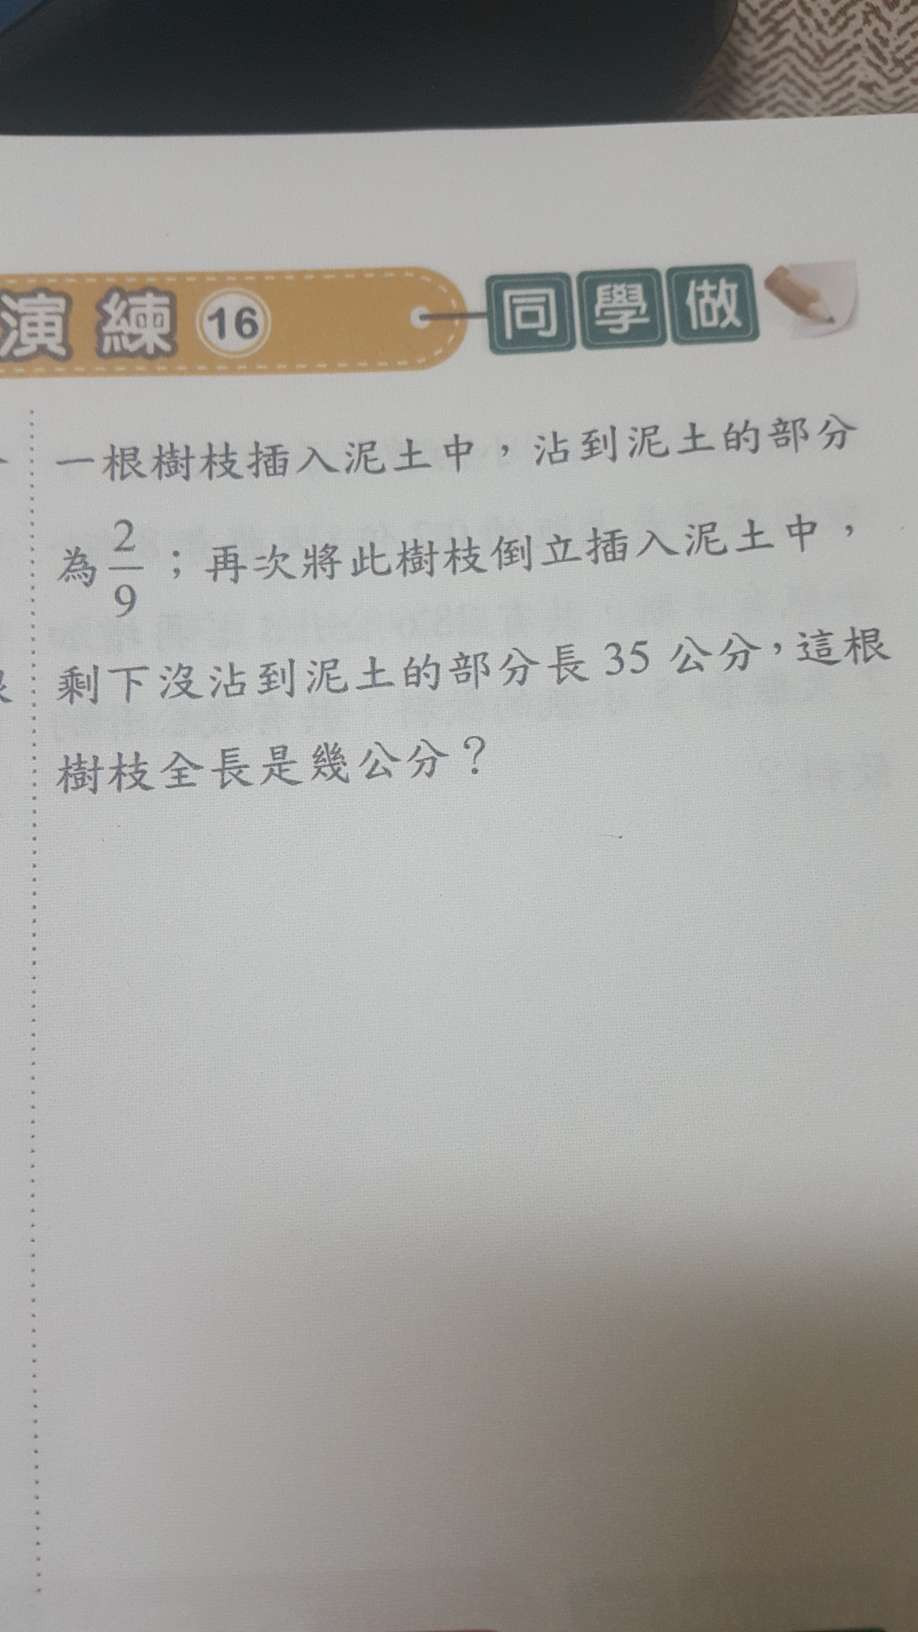 演練 16 同學做
一根樹枝插入泥土中，沾到泥土的部分
為 2/9；再次將此樹枝倒立插入泥土中，
剩下沒沾到泥土的部分長 35 公分，這根
樹枝全長是幾公分？